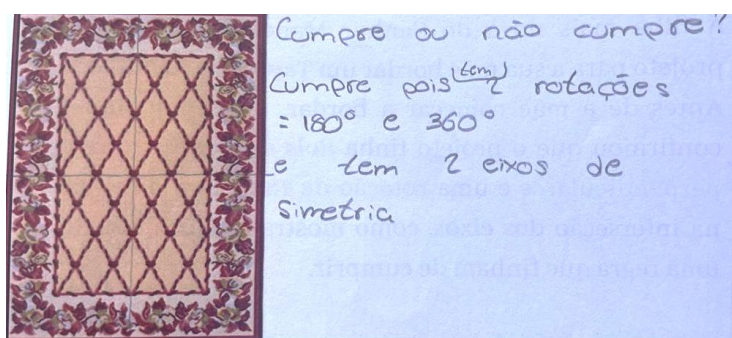 Cumpre ou não cumpre?
Cumpre pois (tem) 2 rotações
= 180° e 360°
e tem 2 eixos de
simetria